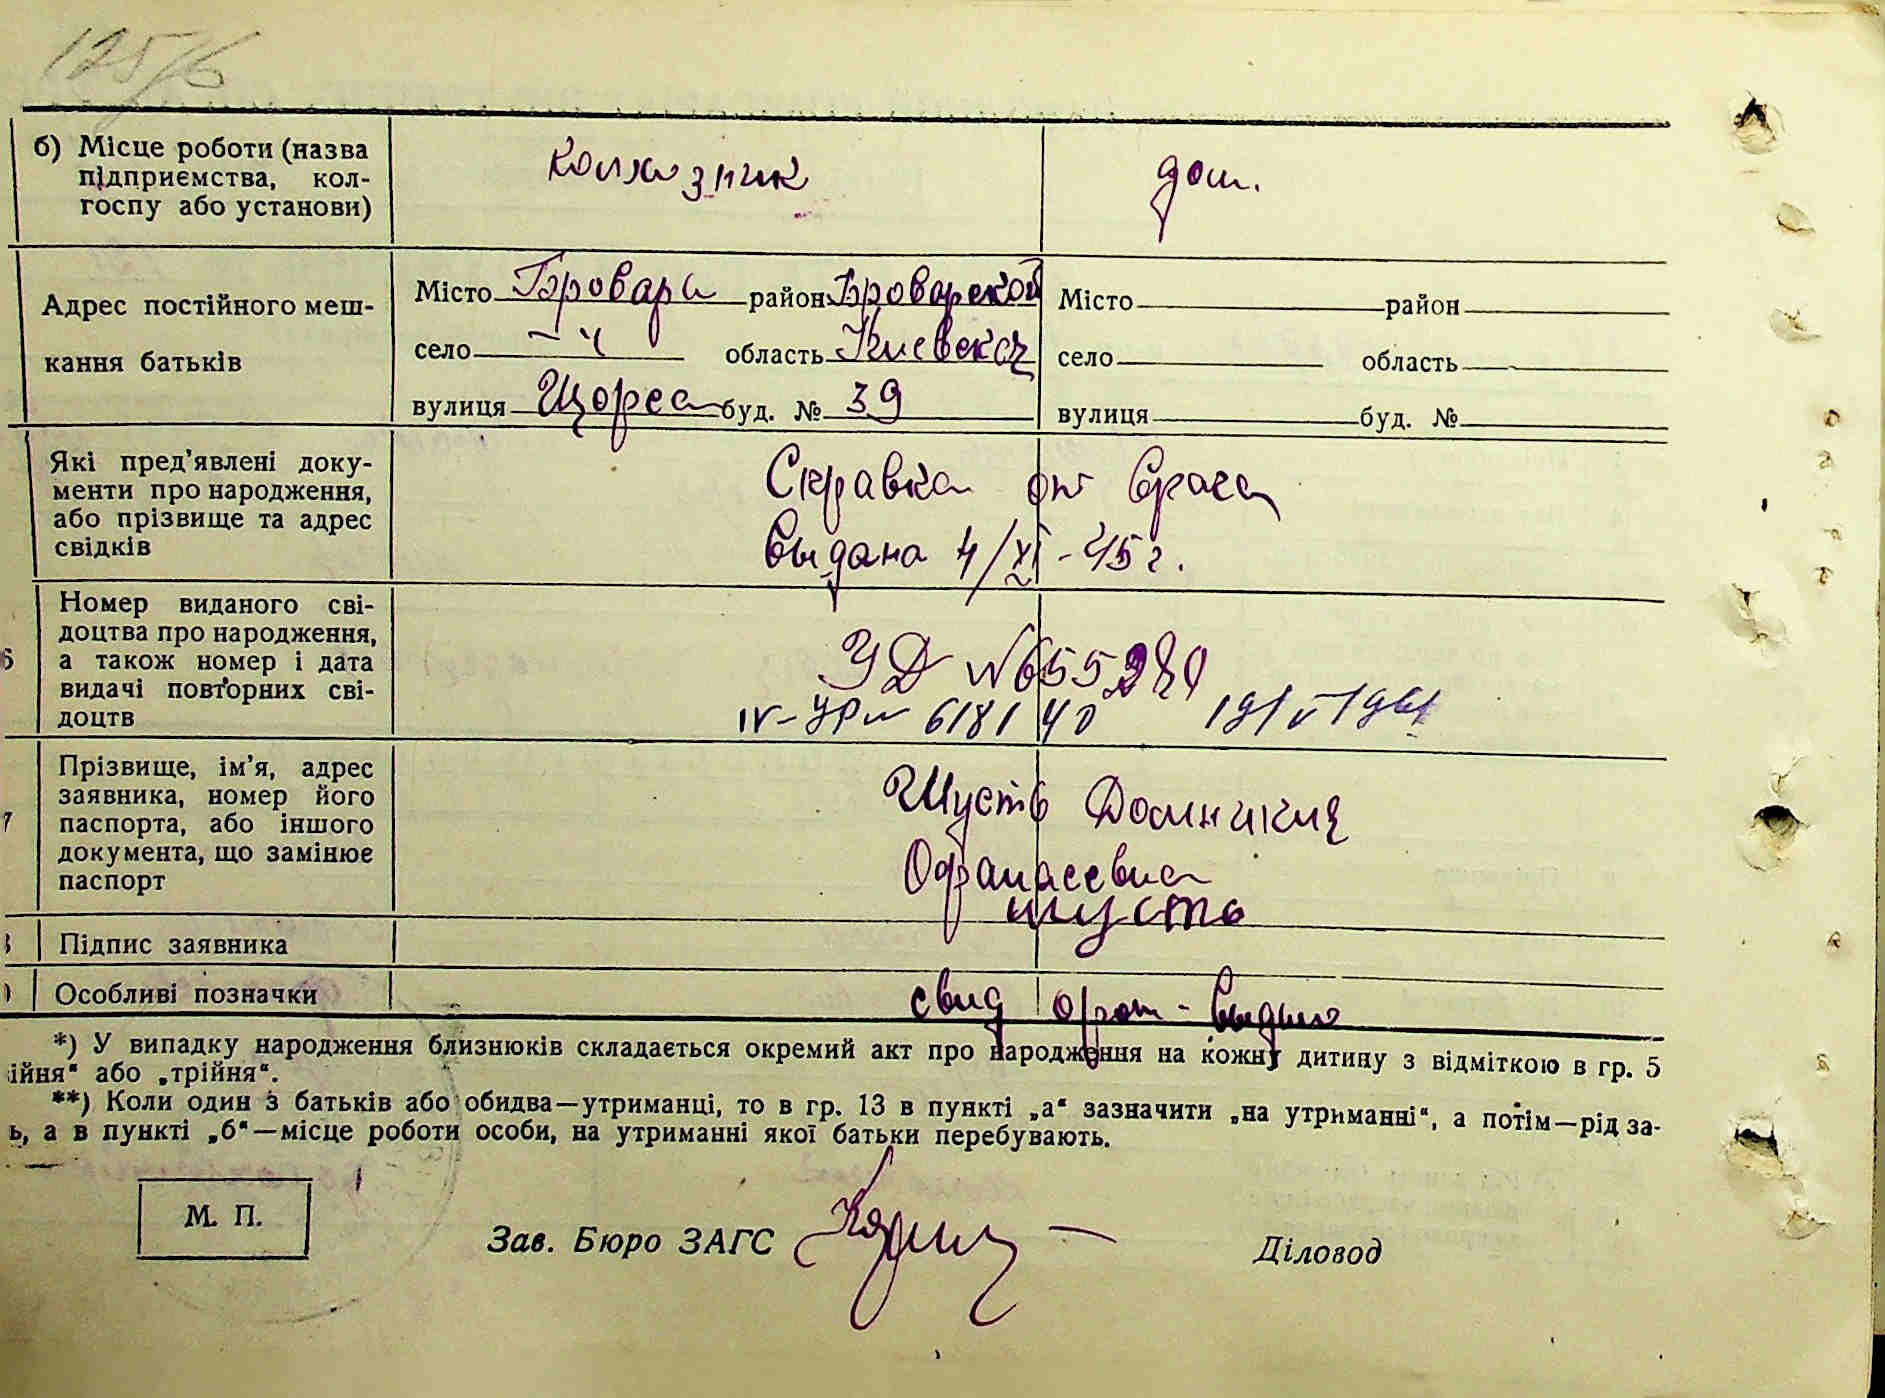 125/6
б) Місце роботи (назва
підприємства, кол-
госпу або установи)
колхозник
дом.
Адрес постійного меш-
кання батьків
Місто Бровари район Броварской
село —"— область Киевская
вулиця Щорса буд. № 39
Місто район
село область
вулиця буд. №
Які пред’явлені доку-
менти про народження,
або прізвище та адрес
свідків
Справка от врача
выдана 4/XI-45 г.
6
Номер виданого сві-
доцтва про народження,
а також номер і дата
видачі повторних сві-
доцтв
УД №
IV-УР № 618140
7
Прізвище, ім’я, адрес
заявника, номер його
паспорта, або іншого
документа, що замінює
паспорт
Шусть Домникия
Офанасевна
Підпис заявника
шусть
Особливі позначки
свид
*) У випадку народження близнюків складається окремий акт про народження на кожну дитину з відміткою в гр. 5
ійня“ або „трійня“.
**) Коли один з батьків або обидва—утриманці, то в гр. 13 в пункті „а“ зазначити „на утриманні“, а потім—рід за-
ь, а в пункті „б“—місце роботи особи, на утриманні якої батьки перебувають.
М. П.
Зав. Бюро ЗАГС
Діловод